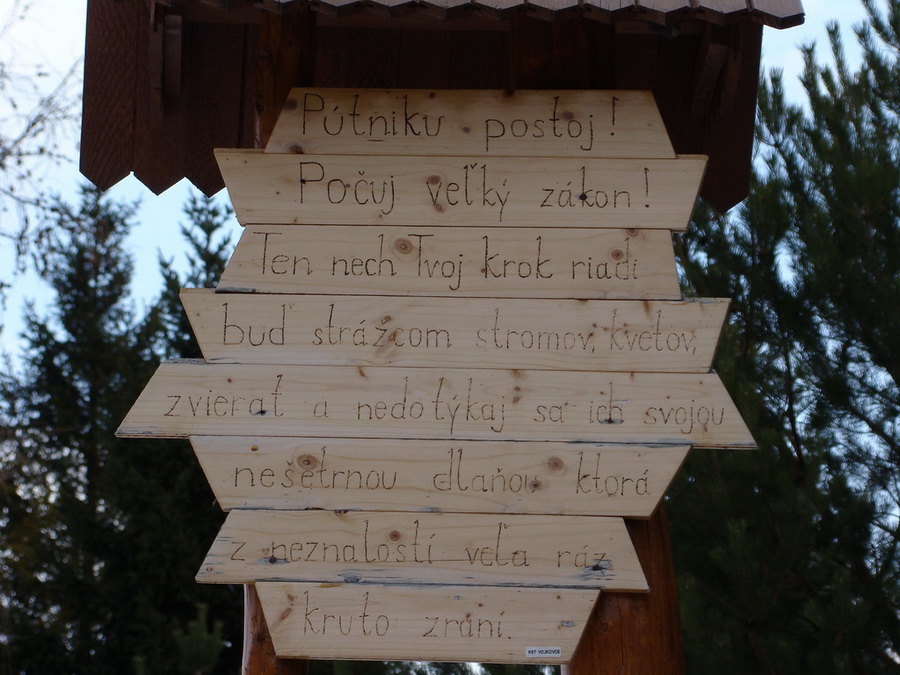 Pútniku postoj!
Počuj veľký zákon!
Ten nech Tvoj krok riadi
buď strážcom stromov, kvetov,
zvierat a nedotýkaj sa ich svojou
nešetrnou dlaňou ktorá
z neznalostí veľa ráz
kruto zraní.